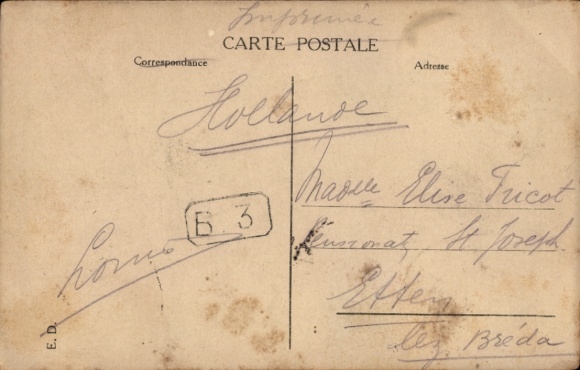 Imprimée
CARTE POSTALE
Correspondance
Adresse
Hollande
Madelle Elise Tricot
Pensionat, St. Joseph
B. 3
Etten
lez Bréda
E. D.